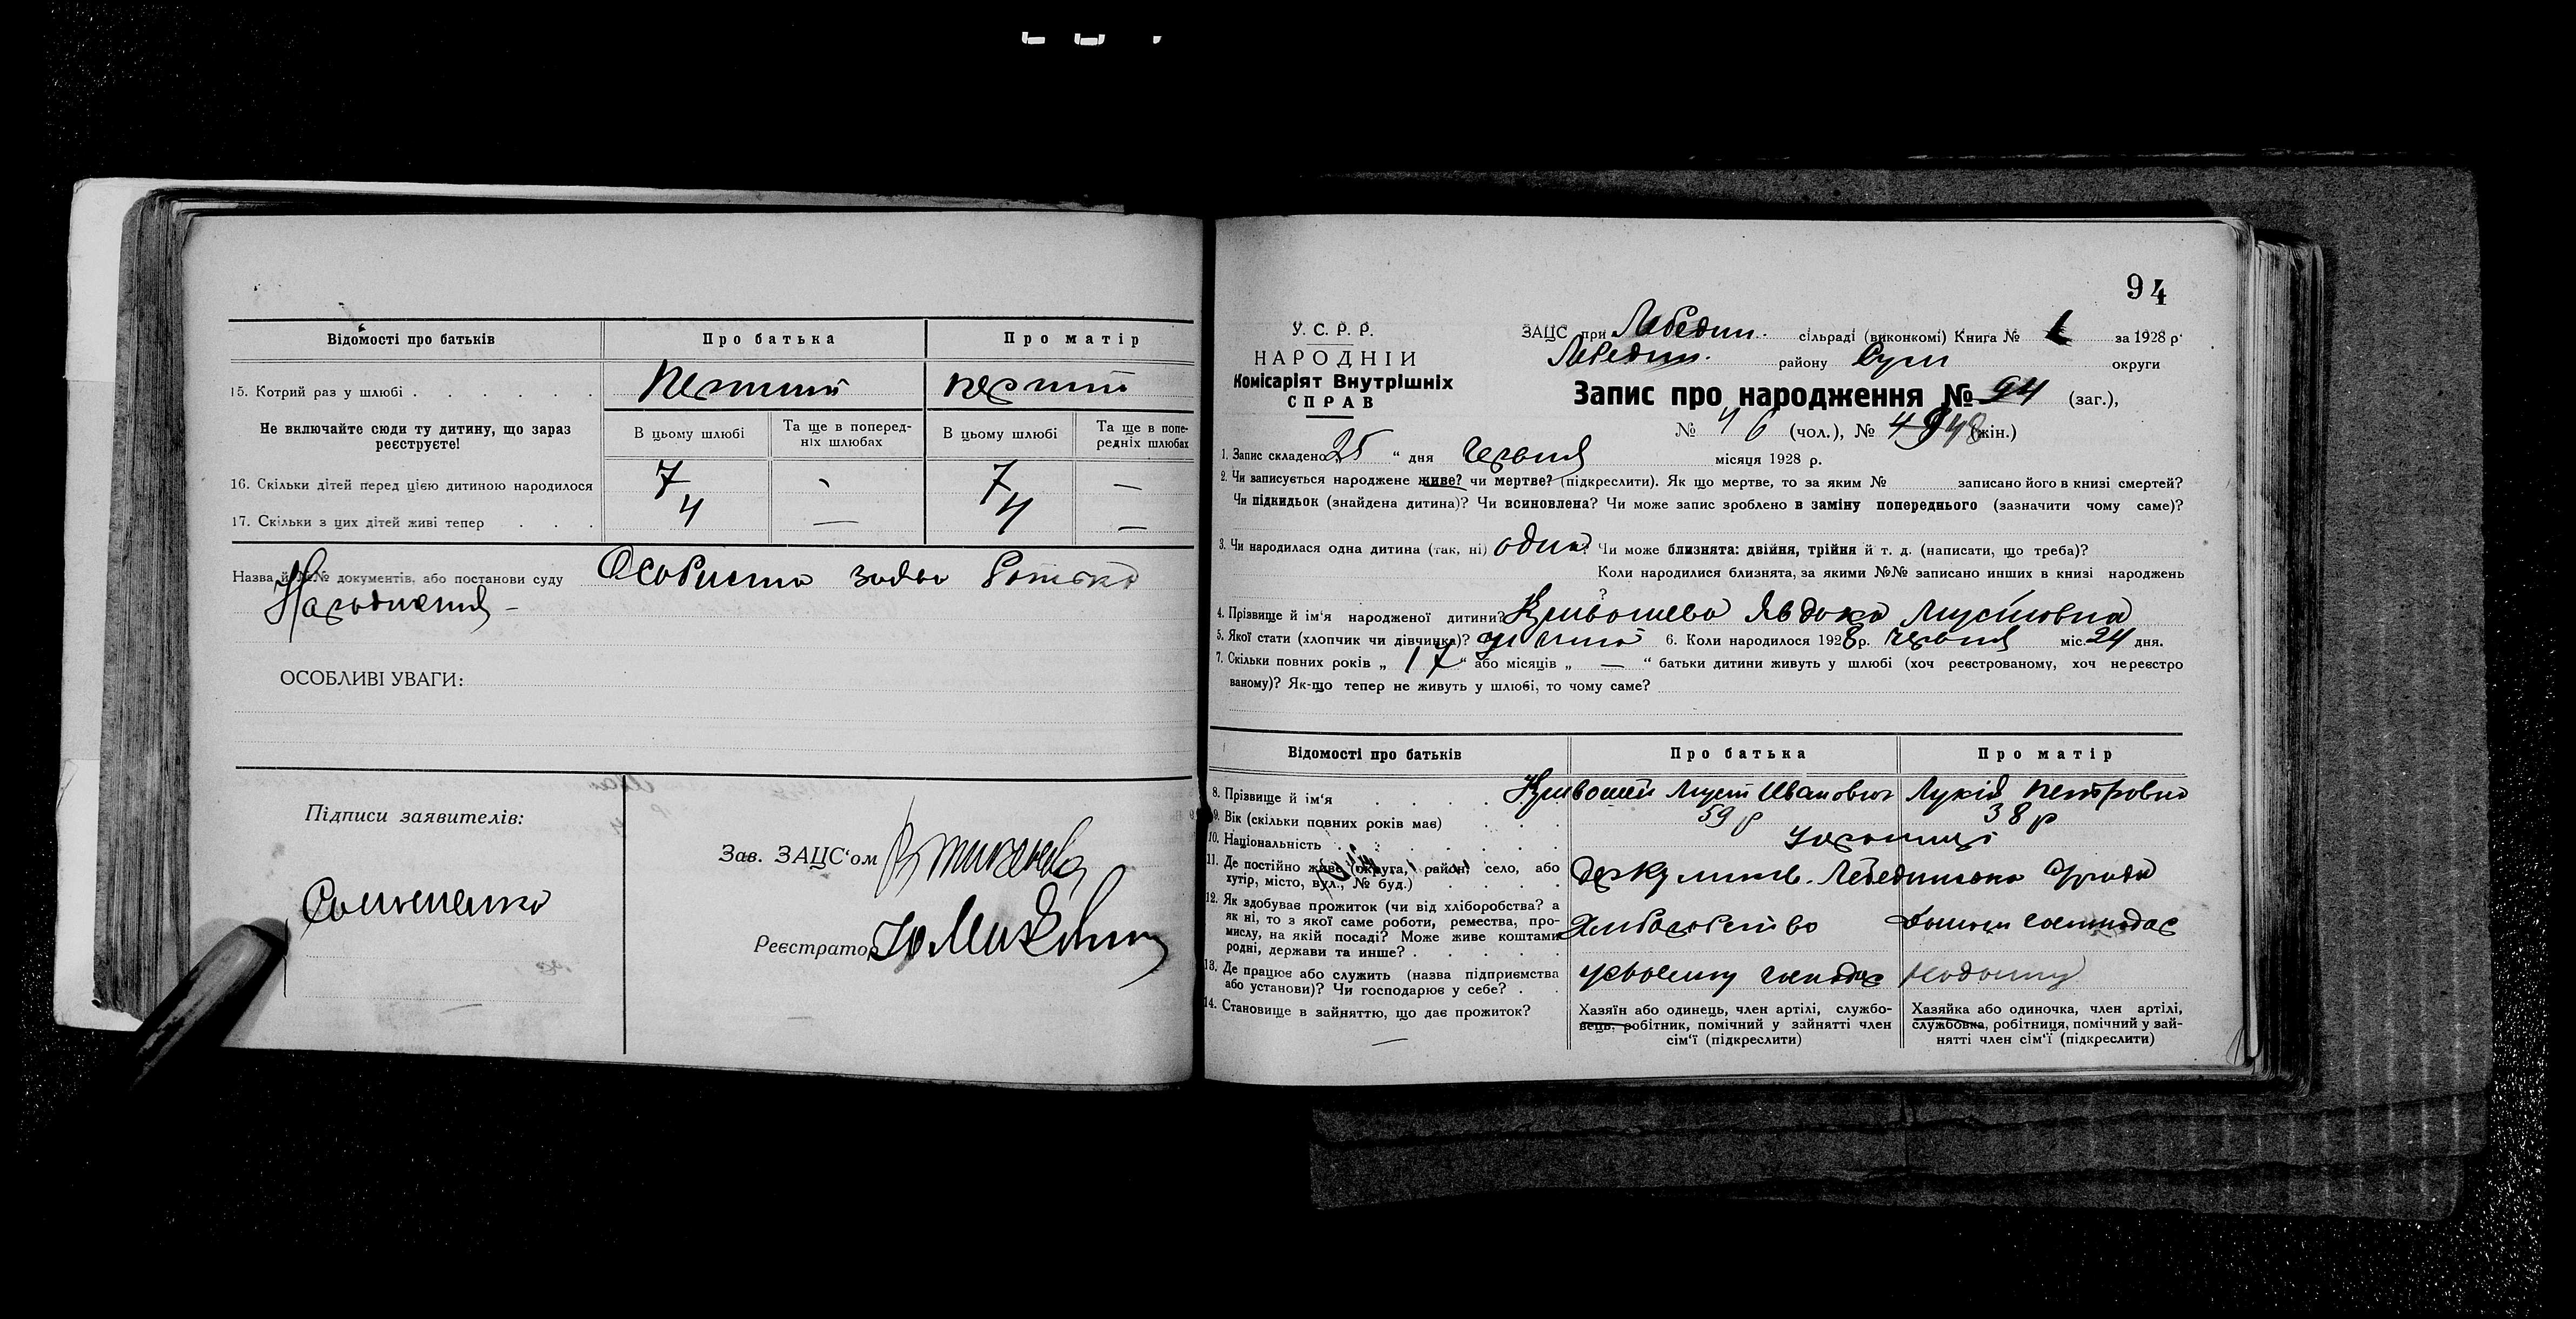 Відомості про батьків
Про батька
Про матір
15. Котрий раз у шлюбі
Перший
перший
Не включайте сюди ту дитину, що зараз реєструєте!
В цьому шлюбі
Та ще в поперед-
ніх шлюбах
В цьому шлюбі
Та ще в попе-
редніх шлюбах
16. Скільки дітей перед цією дитиною народилося
7
7
—
17. Скільки з цих дітей живі тепер
4
—
4
—
Назва й №№ документів, або постанови суду
Особиста заява
ОСОБЛИВІ УВАГИ:
Підписи заявителів:
Зав. ЗАЦС‘ом
Реєстратор
94
У. С. Р. Р.
НАРОДНІЙ
Комісаріят Внутрішніх
СПРАВ
ЗАЦС при Лебедин. сільраді (виконкомі) Книга № 1 за 1928 р.
Лебедин. району Суми округи
Запис про народження № 94 (заг.),
№ 46 (чол.), № 48 (жін.)
1. Запис складено „25“ дня червня місяця 1928 р.
2. Чи записується народжене живе? чи мертве? (підкреслити). Як що мертве, то за яким № записано його в книзі смертей?
Чи підкидьок (знайдена дитина)? Чи всиновлена? Чи може запис зроблено в заміну попереднього (зазначити чому саме)?
3. Чи народилася одна дитина (так, ні) одна? Чи може близнята: двійня, трійня й т. д. (написати, що треба)?
Коли народилися близнята, за якими №№ записано инших в книзі народжень
?
4. Прізвище й ім‘я народженої дитини? Кривошева Явдоха
5. Якої стати (хлопчик чи дівчинка)? 6. Коли народилося 1928 р. червня міс. 24 дня.
7. Скільки повних років „17“ або місяців „—“ батьки дитини живуть у шлюбі (хоч реєстрованому, хоч нереєстро
ваному)? Як-що тепер не живуть у шлюбі, то чому саме?
Відомості про батьків
Про батька
Про матір
8. Прізвище й ім‘я
Кривошей Іванович
Лукія Петровна
9. Вік (скільки повних років має)
59 р
38 р
10. Національність
українці
11. Де постійно живе (округа, район, село, або
хутір, місто, вул., № буд.)
12. Як здобуває прожиток (чи від хліборобства? а
як ні, то з якої саме роботи, ремества, про-
мислу, на якій посаді? Може живе коштами
родні, держави та инше?
Хліборобство
13. Де працює або служить (назва підприємства
або установи)? Чи господарює у себе?
14. Становище в зайняттю, що дає прожиток?
Хазяїн або одинець, член артілі, службо-
вець, робітник, помічний у зайнятті член
сім‘ї (підкреслити)
Хазяйка або одиночка, член артілі,
службовка, робітниця, помічний у зай-
нятті член сім‘ї (підкреслити)